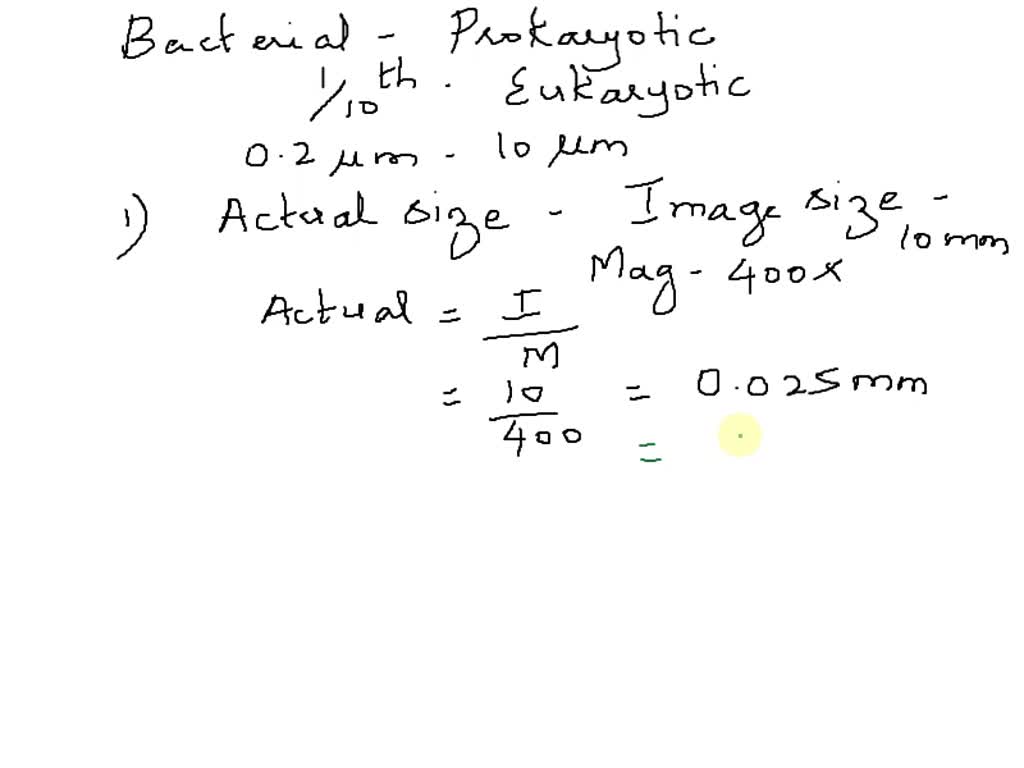 Bacterial - Prokaryotic
1/10th . Eukaryotic
0.2 μm - 10 μm
1) Actual size - Image size - 10 mm
Mag - 400x
Actual = I / M
= 10 / 400 = 0.025 mm
=